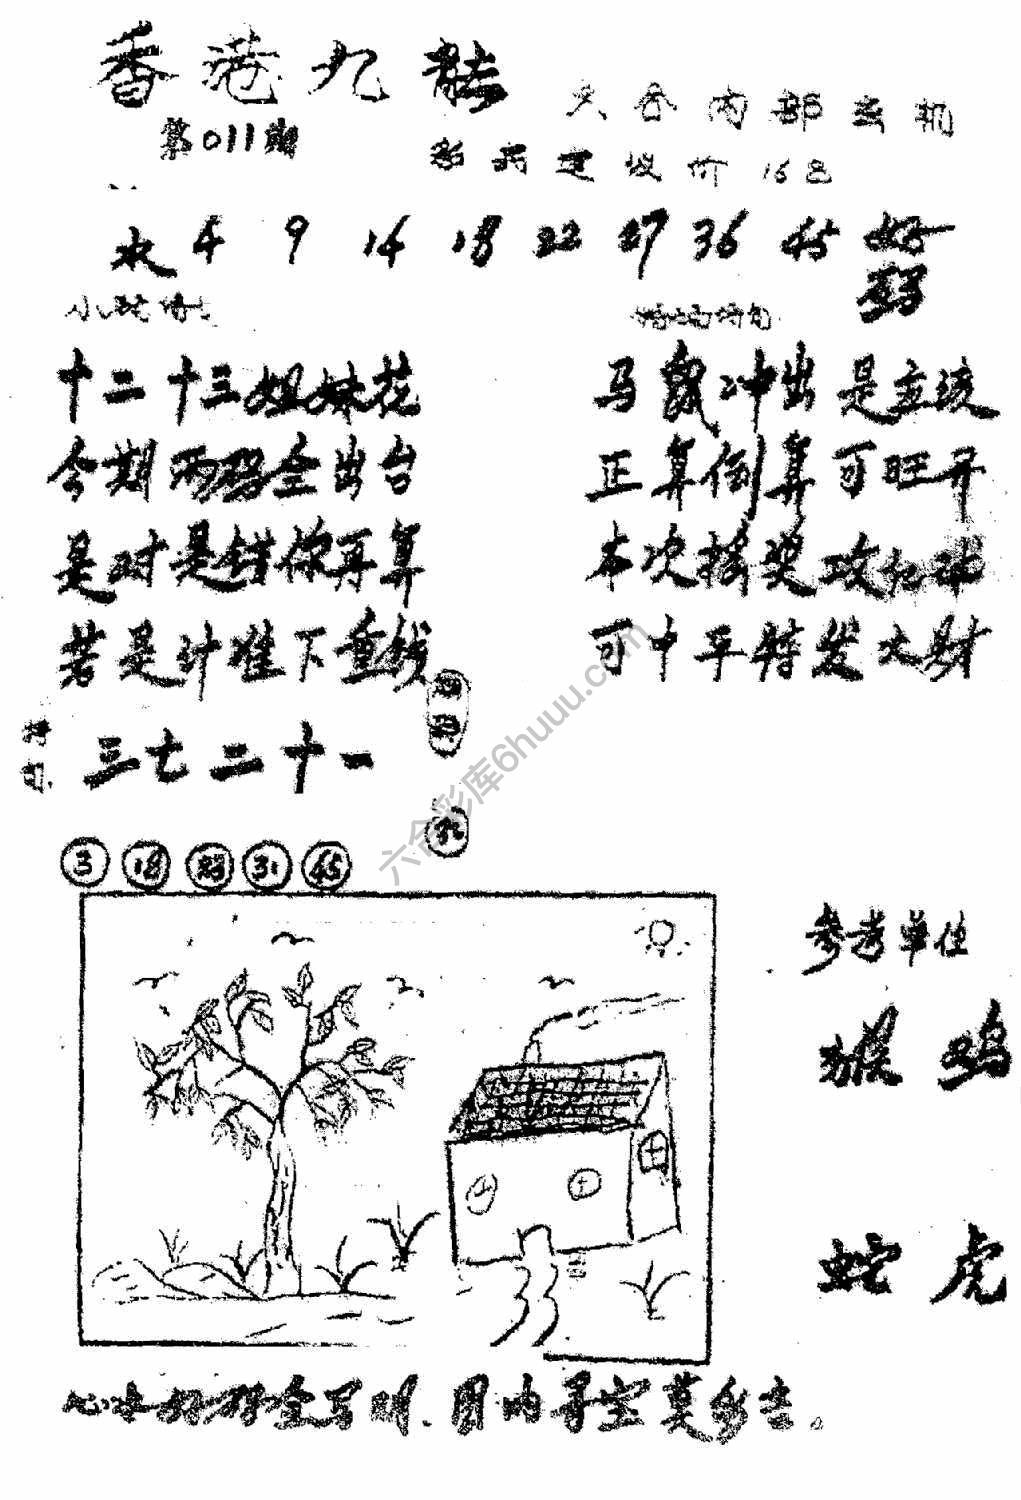 香港九龙
六合内部玄机
第011期
彩丙建议价168
水 4 9 14 18 22 27 36 45 好码
特码诗句
十二十三姐妹花
今期两码全出台
是对是错你再算
若是计准下重钱
马鼠冲出是主流
正算倒算可旺开
本次搖奖攻
可中平特发大财
三七二十一
3 18 31 45
参考单位
猴 鸡
蛇 虎
心水好码全写明.图内寻宝莫乡去.
六合彩库6huuu.com